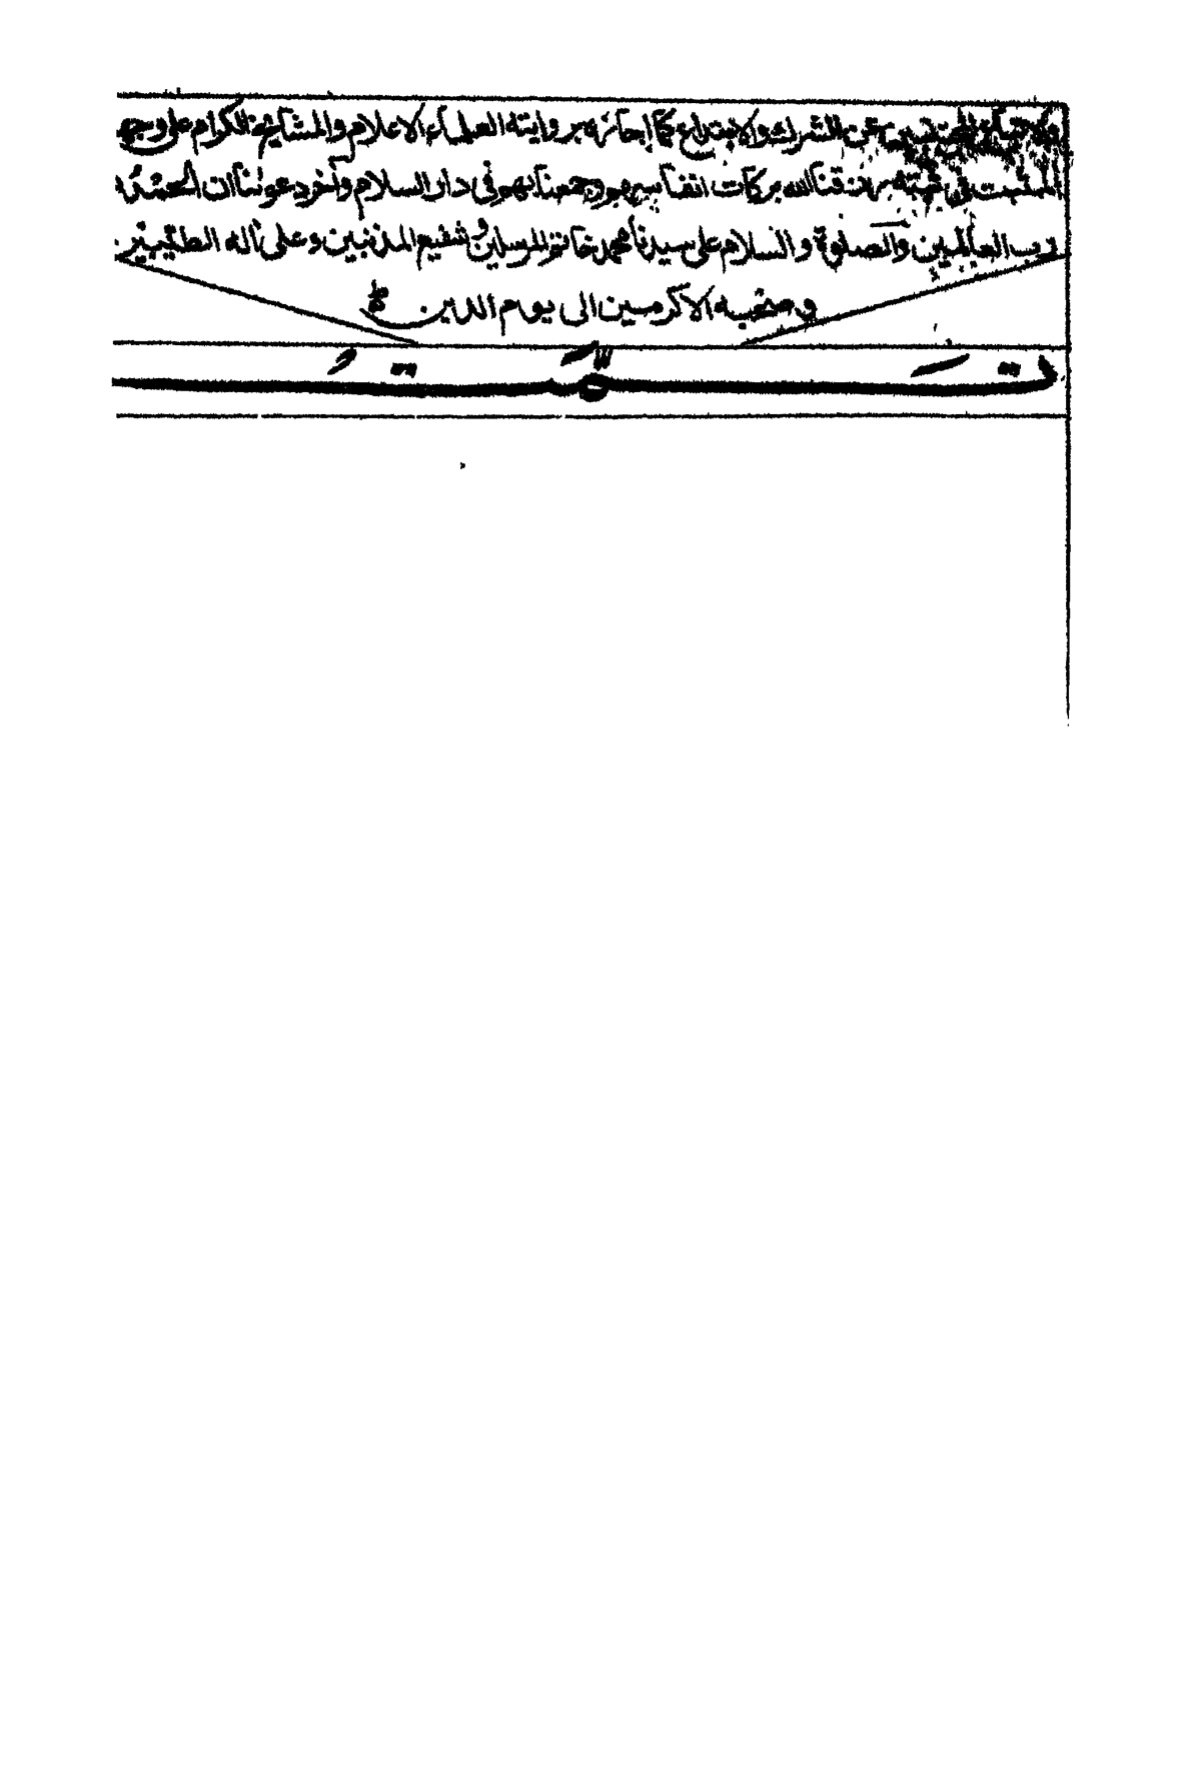 المجتنبين عن الشرك والابتداع كما اجازه بروايته العلماء الاعلام والمشايخ الكرام على وجه
المثبت فى ثبته رزقنا الله بركات انفاسهم وجمعنا بهم فى دار السلام وآخر دعوٰنا ان الحمد لله
رب العالمين والصلوة والسلام على سيدنا محمد خاتم المرسلين وشفيع المذنبين وعلى آله الطيبين
وصحبه الاكرمين الى يوم الدين
تمت